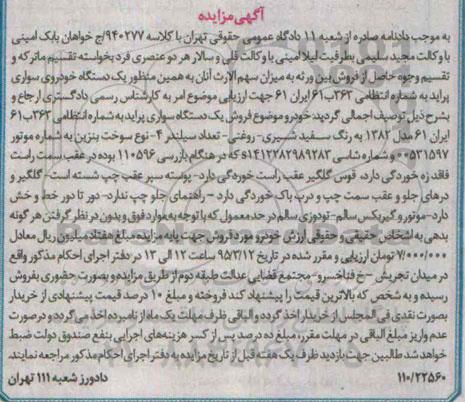 آگهی مزایده
به موجب دادنامه صادره از شعبه ۱۱ دادگاه عمومی حقوقی تهران با کلاسه ۹۴۰۲۷۷/ج خواهان بابک امینی
با وکالت مجید سلیمی بطرفیت لیلا امینی با وکالت قلی و سالار هر دو عنصری فرد بخواسته تقسیم ماترکه و
تقسیم وجوه حاصل از فروش بین ورثه به میزان سهم الارث آنان به همین منظور یک دستگاه خودروی سواری
پراید به شماره انتظامی ۳۶۳ب۶۱ ایران ۶۱ جهت ارزیابی موضوع امر به کارشناس رسمی دادگستری ارجاع و
بشرح ذیل توصیف اجمالی گردید: خودرو موضوع فروش یک دستگاه سواری پراید به شماره انتظامی ۳۶۳ب۶۱
ایران ۶۱ مدل ۱۳۸۲ به رنگ سفید شیری- روغنی- تعداد سیلندر ۴- نوع سوخت بنزین به شماره موتور
۰۰۵۳۱۵۹۷ و شماره شاسی ۱۴۱۲۲۸۲۹۸۹۲۸۳ که در هنگام بازرسی ۱۱۰۵۹۶ بوده در عقب سمت راست
فاقد زه خوردگی دارد، قوس گلگیر عقب راست خوردگی دارد- پوسته سپر عقب چپ شسته است- گلگیر و
درهای جلو و عقب سمت چپ و درب باک خوردگی دارد - راهنمای جلو چپ ندارد- دور تا دور خط و خش
دارد-موتور و گیربکس سالم- تودوزی سالم در حد معمول که با توجه به موارد فوق و بدون در نظر گرفتن هر گونه
بدهی به اشخاص حقیقی و حقوقی ارزش خودرو مورد فروش جهت پایه مزایده مبلغ هفتاد میلیون ریال معادل
۷/۰۰۰/۰۰۰ تومان ارزیابی و مقرر شده در تاریخ ۹۵/۳/۱۲ ساعت ۱۲ الی ۱۳ در دفتر اجرای احکام مذکور واقع
در میدان تجریش -خ فناخسرو- مجتمع قضایی عدالت طبقه دوم از طریق مزایده و بصورت حضوری بفروش
رسیده و به شخص که بالاترین قیمت را پیشنهاد کند فروخته و مبلغ ۱۰ درصد قیمت پیشنهادی از خریدار
بصورت نقدی فی المجلس از خریدار اخذ گردد و الباقی ظرف مهلت یک ماه از نامبرده اخذ می گردد و درصورت
عدم واریز مبلغ الباقی در مهلت مقرره مبلغ ده درصد پس از کسر هزینه‌های اجرایی بنفع صندوق دولت ضبط
خواهد شد طالبین جهت بازدید ظرف یک هفته قبل از تاریخ مزایده به دفتر اجرای احکام مذکور مراجعه نمایند.
۱۱۰/۲۲۵۶۰ دادورز شعبه ۱۱۱ تهران